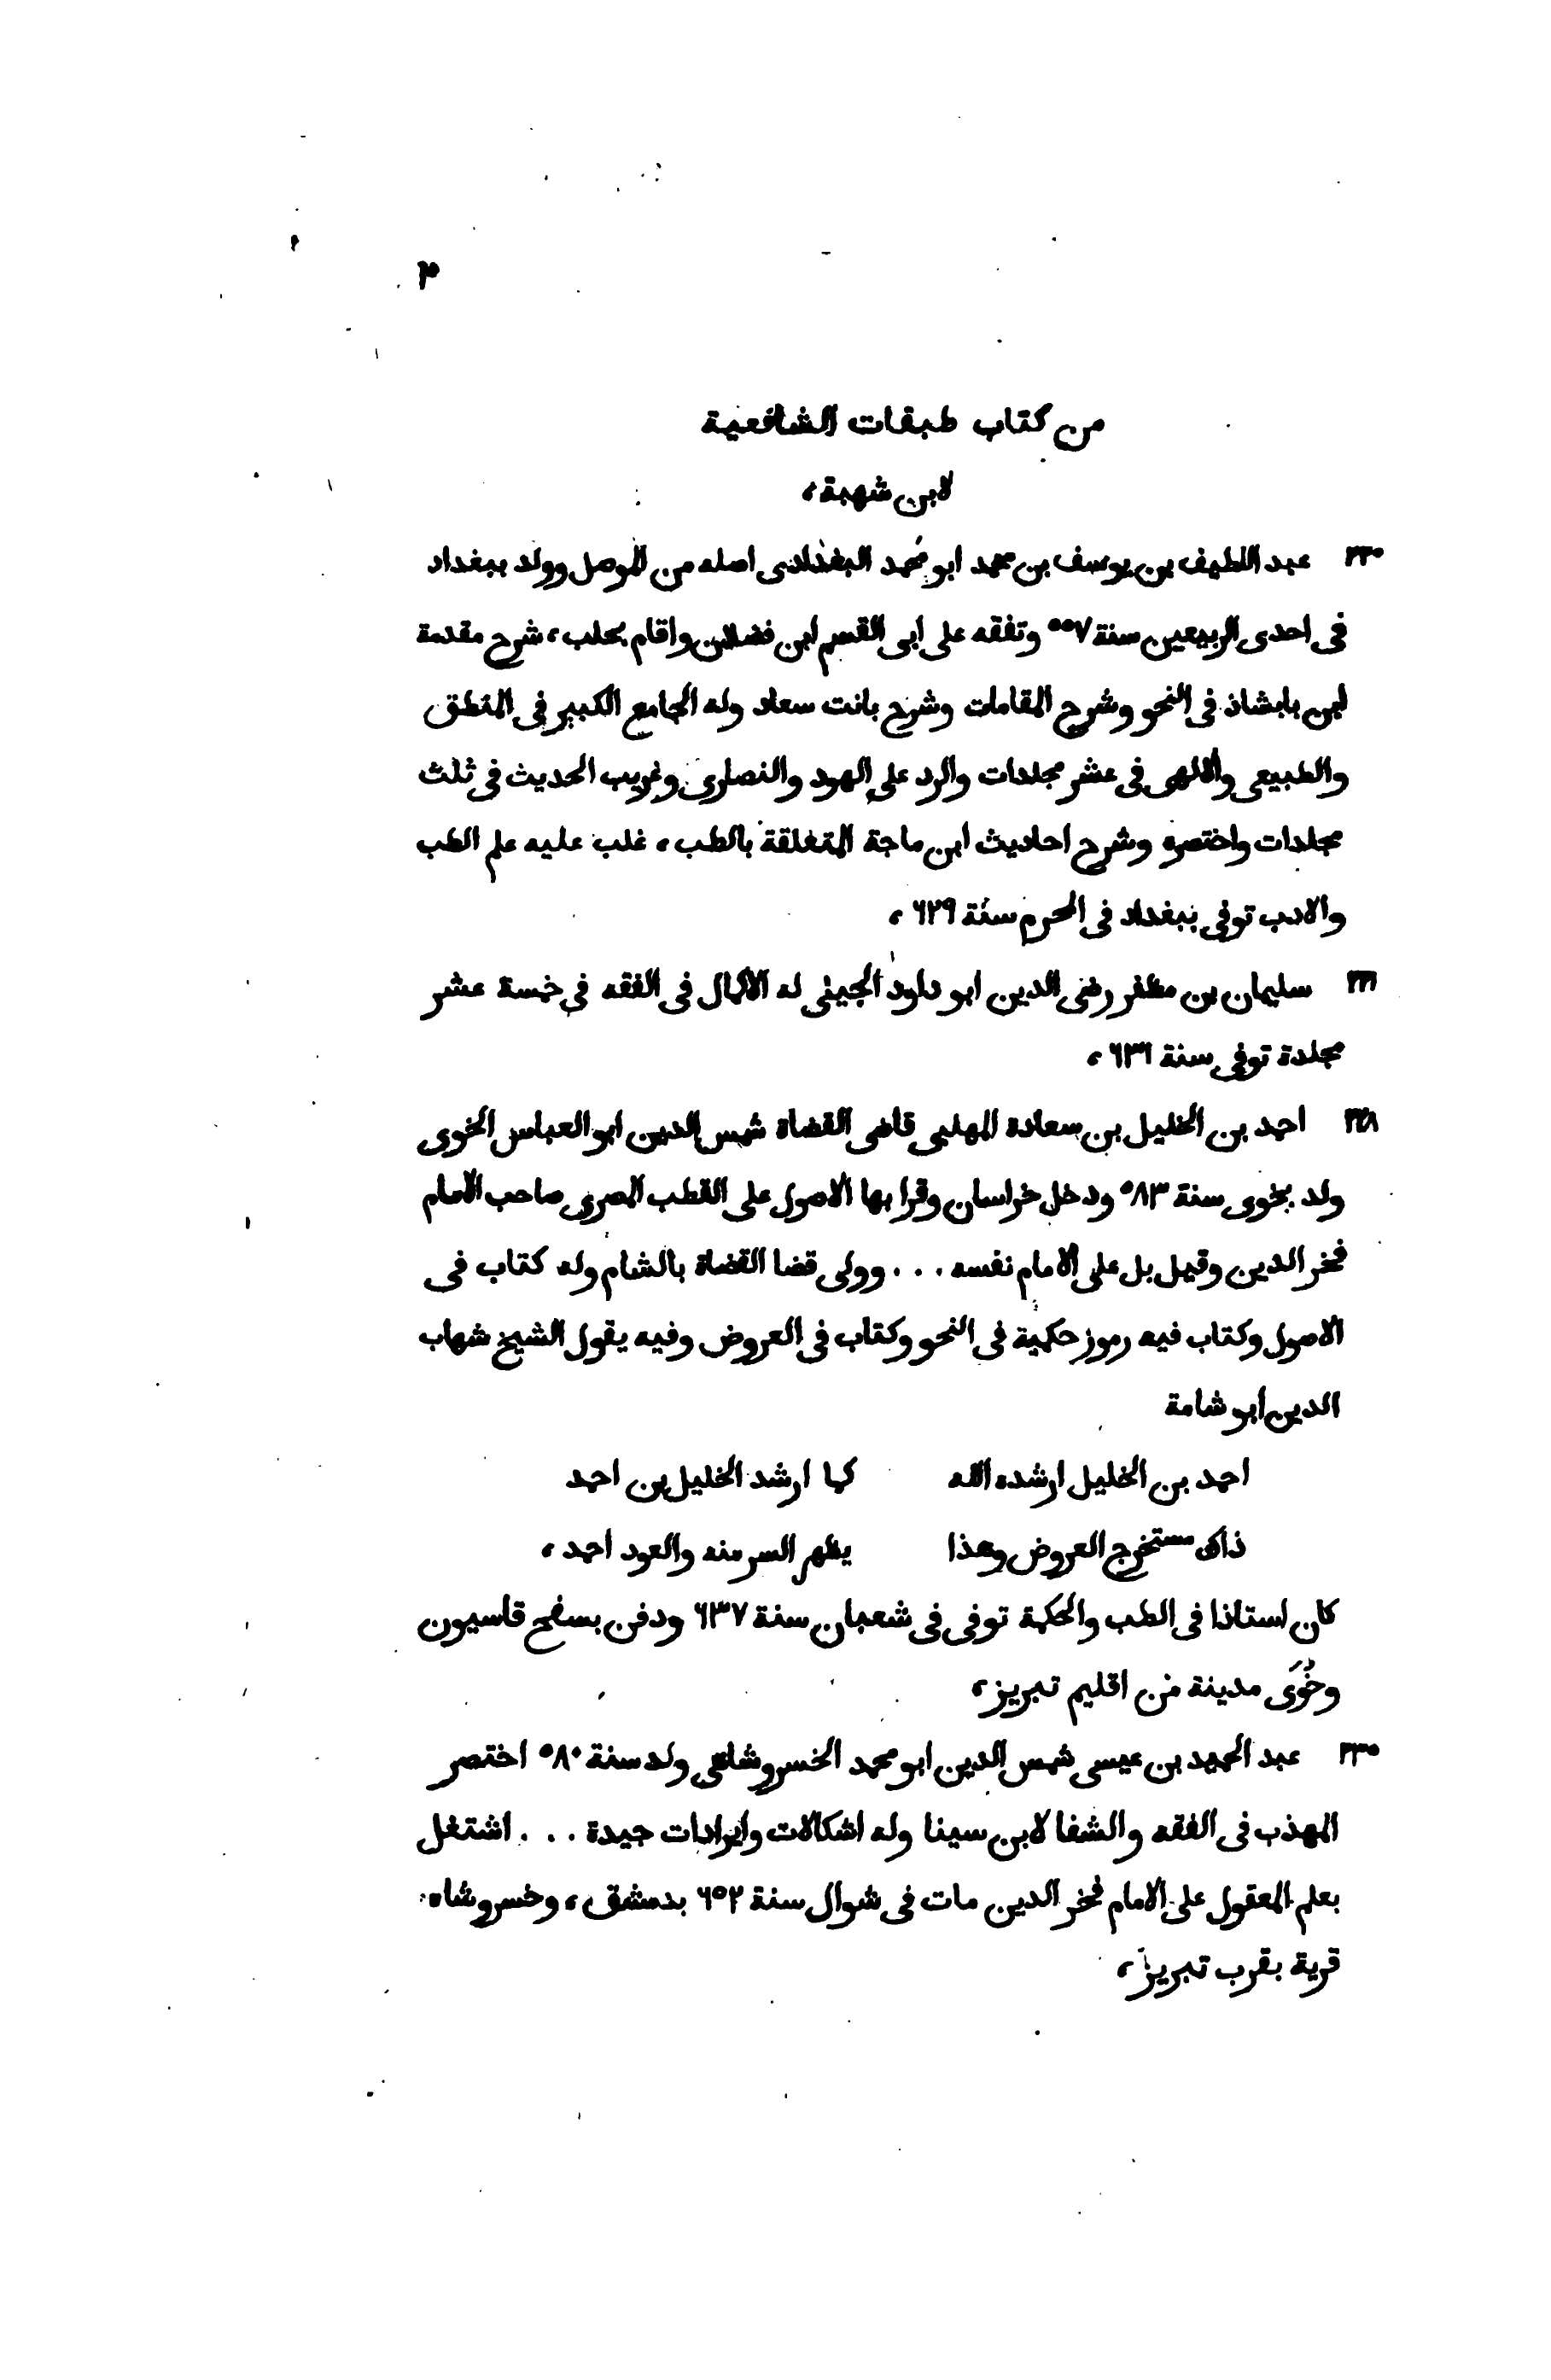 ٣
من كتاب طبقات الشافعية
لابن شهبة،
٢٢٠ عبد اللطيف بن يوسف بن محمد ابو محمد البغدادى اصله من الموصل وولد ببغداد
فى احدى الربيعين سنة ٥٥٧ وتفقه على ابى القسم ابن فضلان واقام بحلب، شرح مقدمة
ابن بابشاذ فى النحو وشرح المقامات وشرح بانت سعاد وله الجامع الكبير فى المنطق
والطبيعى والالهى فى عشر مجلدات والرد على اليهود والنصارى وغريب الحديث فى ثلث
مجلدات واختصره وشرح احاديث ابن ماجة المتعلقة بالطب، غلب عليه علم الطب
والادب توفى ببغداد فى المحرم سنة ٦٢٩،
سليمان بن مظفر رضى الدين ابو داود الجيلى له الاكمال فى الفقه فى خمسة عشر
مجلدة توفى سنة ٦٣١،
احمد بن الخليل بن سعادة المهلبى قاضى القضاة شمس الدين ابو العباس الخوى
ولد بخوى سنة ٥٨٣ ودخل خراسان وقرا بها الاصول على القطب المصرى صاحب الامام
فخر الدين وقيل بل على الامام نفسه . . . وولى قضا القضاة بالشام وله كتاب فى
الاصول وكتاب فيه رموز حكمية فى النحو وكتاب فى العروض وفيه يقول الشيخ شهاب
الدين ابو شامة
احمد بن الخليل ارشده الله كما ارشد الخليل بن احمد
ذاك مستخرج العروض وهذا يظهر السر منه والعود احمد،
كان استاذا فى الطب والحكمة توفى فى شعبان سنة ٦٣٧ ودفن بسفح قاسيون
وخُوَى مدينة من اقليم تبريز،
٢٣٥ عبد الحميد بن عيسى شمس الدين ابو محمد الخسروشاهى ولد سنة ٥٨٠ اختصر
المهذب فى الفقه والشفا لابن سينا وله اشكالات وايرادات جيدة . . . اشتغل
بعلم المعقول على الامام فخر الدين مات فى شوال سنة ٦٥٢ بدمشق، وخسروشاه
قرية بقرب تبريز،